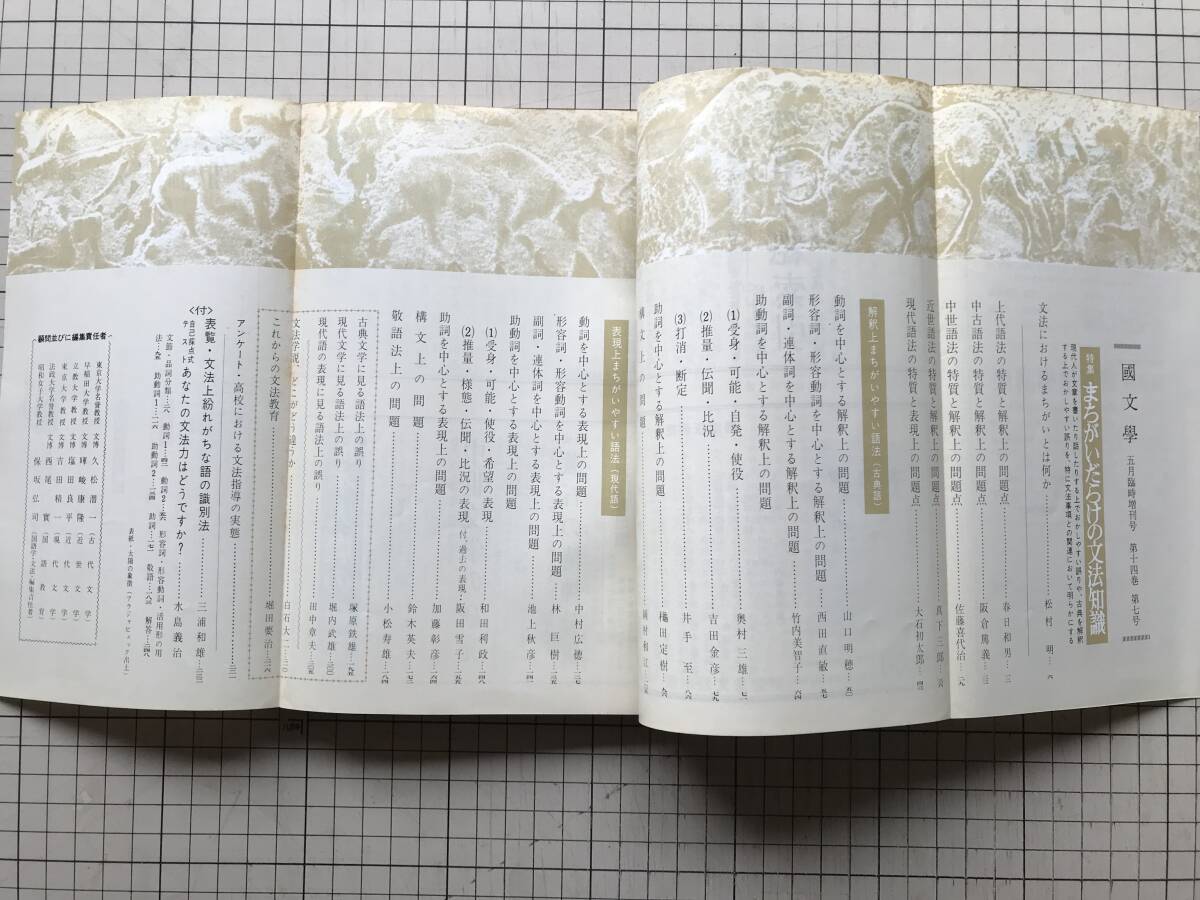 國文學 五月臨時増刊号 第十四巻 第七号
特集 まちがいだらけの文法知識
現代人が文章を書いたり話したりする上でおかしやすい誤りや、古典を解釈
する上でおかしやすい誤りを、特に文法事項との関連において明らかにする
文法におけるまちがいとは何か 松村 明
上代語法の特質と解釈上の問題点 春日和男
中古語法の特質と解釈上の問題点 阪倉篤義
中世語法の特質と解釈上の問題点 佐藤喜代治
近世語法の特質と解釈上の問題点 真下三郎
現代語法の特質と表現上の問題点 大石初太郎
解釈上まちがいやすい語法(古典語)
動詞を中心とする解釈上の問題 山口明穂
形容詞・形容動詞を中心とする解釈上の問題 西田直敏
副詞・連体詞を中心とする解釈上の問題 竹内美智子
助動詞を中心とする解釈上の問題
(1)受身・可能・自発・使役 奥村三雄
(2)推量・伝聞・比況 吉田金彦
(3)打消・断定 井手 至
助詞を中心とする解釈上の問題 此島正年
構文上の問題
表現上まちがいやすい語法(現代語)
動詞を中心とする表現上の問題 中村広徳
形容詞・形容動詞を中心とする表現上の問題 林 巨樹
副詞・連体詞を中心とする表現上の問題 池上秋彦
助動詞を中心とする表現上の問題
(1)受身・可能・使役・希望の表現 和田利政
(2)推量・様態・伝聞・比況の表現 付、過去の表現 阪田雪子
助詞を中心とする表現上の問題 加藤彰彦
構文上の問題 鈴木英夫
敬語法上の問題 小松寿雄
古典文学に見る語法上の誤り 塚原鉄雄
現代文学に見る語法上の誤り 堀内武雄
現代語の表現に見る語法上の誤り 田中章夫
文法学説、どこがどう違うか 白石大二
これからの文法教育 堀田要治
アンケート・高校における文法指導の実態
〈付〉
表覧・文法上紛れがちな語の識別法 三浦和雄
自己採点式テスト あなたの文法力はどうですか? 水島義治
文節・品詞分類 動詞1 動詞2 形容詞・形容動詞・活用形の用
法 助動詞1 助動詞2 助詞 敬語 解答
表紙・太陽の象徴
顧問並びに編集責任者
東京大学名誉教授 文博 久松潜一(古代文学)
早稲田大学教授 文博 暉峻康隆(近世文学)
立教大学教授 文博 塩田良平(近代文学)
東京大学教授 文博 吉田精一(現代文学)
法政大学名誉教授 文博 西尾實(国語教育)
昭和女子大学教授 保坂弘司(国語学・文法)・編集責任者